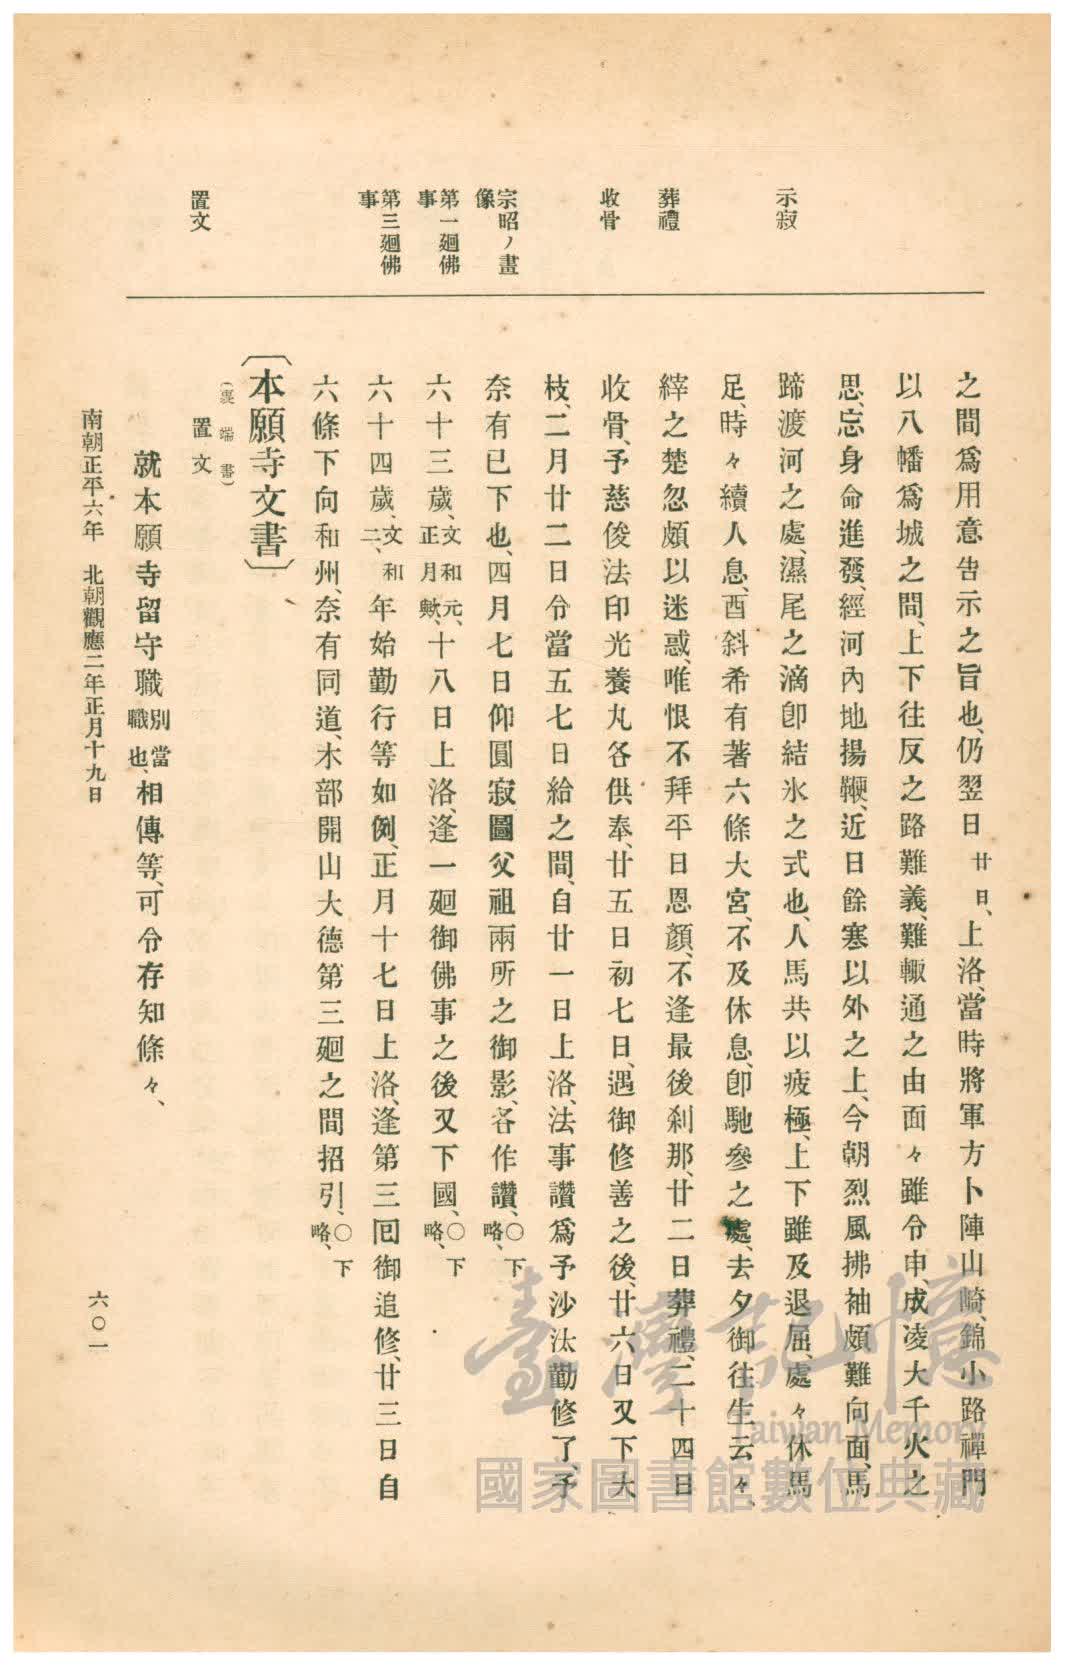 示寂
葬禮
收骨
宗昭ノ畫
像
第一廻佛
事
第三廻佛
事
置文
之間爲用意告示之旨也、仍翌日廿日、上洛、當時將軍方卜陣山崎、錦小路禪門
以八幡爲城之間、上下往反之路難義、難輙通之由面々雖令申、成凌大千火之
思、忘身命進發、經河內地揚鞭、近日餘寒以外之上、今朝烈風拂袖頗難向面、馬
蹄渡河之處、濕尾之滴卽結氷之式也、人馬共以疲極、上下雖及退屈、處々休馬
足、時々續人息、酉斜希有著六條大宮、不及休息、卽馳參之處、去夕御往生云々、
縡之楚忽頗以迷惑、唯恨不拜平日恩顏、不逢最後刹那、廿二日葬禮、二十四日
收骨、予慈俊法印光養丸各供奉、廿五日初七日、遇御修善之後、廿六日又下大
枝、二月廿二日令當五七日給之間、自廿一日上洛、法事讚爲予沙汰勤修了、予
奈有已下也、四月七日仰圓寂圖父祖兩所之御影、各作讚、○下略、
六十三歲、文和元、正月歟、十八日上洛、逢一廻御佛事之後又下國、○下略、
六十四歲、文和二、年始勤行等如例、正月十七日上洛、逢第三回御追修、廿三日自
六條下向和州、奈有同道、木部開山大德第三廻之間招引、○下略、
〔本願寺文書〕
(裏端書)
置文
就本願寺留守職別當職也、相傳等、可令存知條々、
南朝正平六年 北朝觀應二年正月十九日
六〇一
臺灣記憶
Taiwan Memory
國家圖書館數位典藏